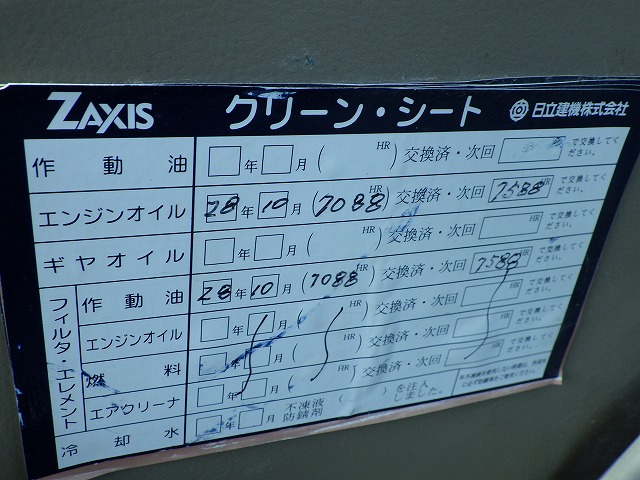 ZAXIS クリーン・シート 日立建機株式会社
作動油 年 月 ( HR) 交換済・次回 で交換してください。
エンジンオイル 28年 10月 (7088 HR) 交換済・次回 7588 HR で交換してください。
ギヤオイル 年 月 ( HR) 交換済・次回 HR で交換してください。
フィルタ・エレメント
作動油 28年 10月 (7088 HR) 交換済・次回 7588 HR で交換してください。
エンジンオイル 年 月 ( HR) 交換済・次回 HR で交換してください。
燃料 年 月 ( HR) 交換済・次回 HR で交換してください。
エアクリーナ 年 月 ( HR) 交換済・次回 HR で交換してください。
冷却水 年 月 不凍液 防錆剤 ( ) を注入しました。